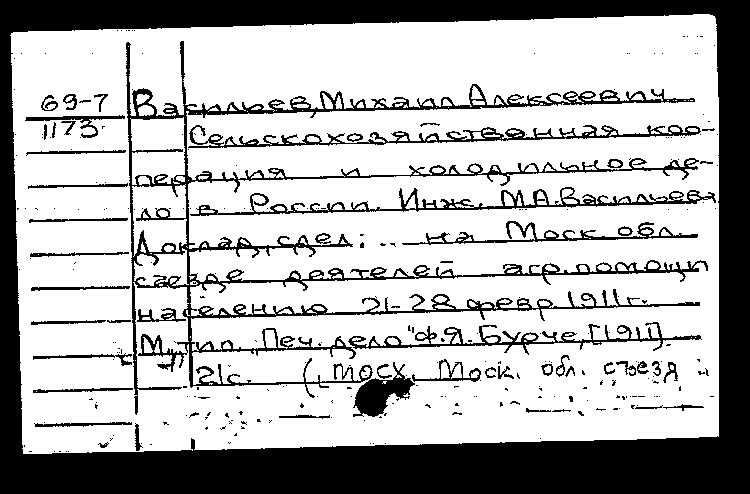 69-7 Васильев, Михаил Алексеевич.
1173. Сельскохозяйственная коо-
перация и холодильное де-
ло в России. Инж. М.А.Васильева
Доклад, сдел: ... на Моск обл.
съезде деятелей агр. помощи
населению 21-28 февр 1911г.
М., тип. „Печ. дело" Ф.Я. Бурче, [1911].
21с. (МОСХ. Моск. обл. съезд